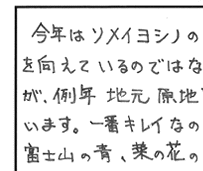 今年はソメイヨシノの
を向えているのではな
が、例年 地元 原地
います。一番キレイなの
富士山の青、菜の花の